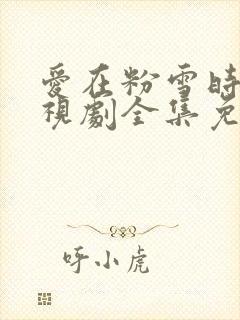 愛在粉雪時
視劇全集免
呼小虎